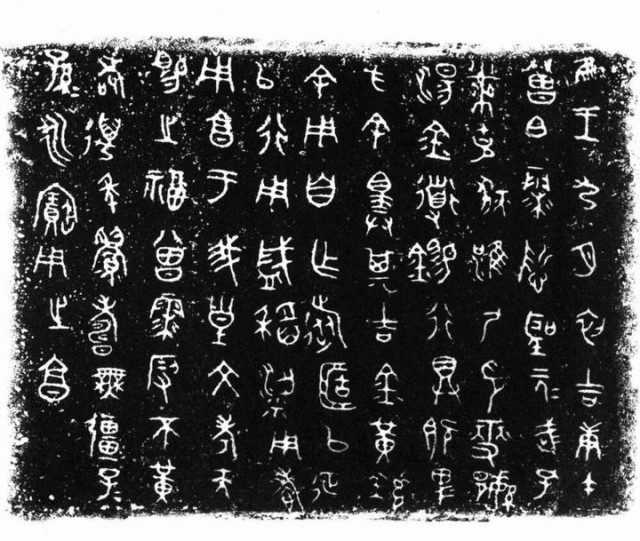 隹王九月初吉庚午
曾白霥哲聖元武孔
黹克狄淮尸印燮繁
湯金道錫行具既卑
方余擇其吉金黃鑪
余用自乍旅𠤳以征
以行用盛稻粱用孝
用亯于我皇文考天
賜之福曾霥叚不黃
耇萬年眉壽無彊子
孫永寶用之亯